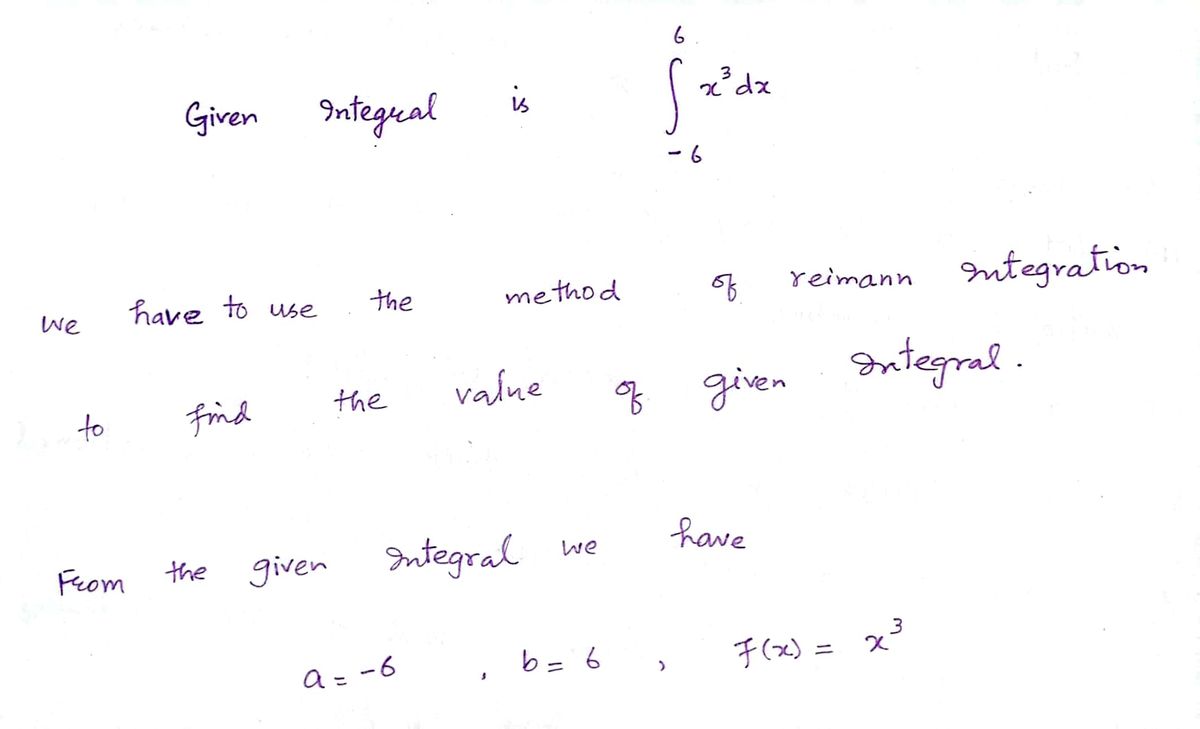 Given Integral is ∫_{-6}^{6} x³ dx
We have to use the method of reimann Integration
to find the value of given Integral.
From the given Integral we have
a = -6 , b = 6 , f(x) = x³